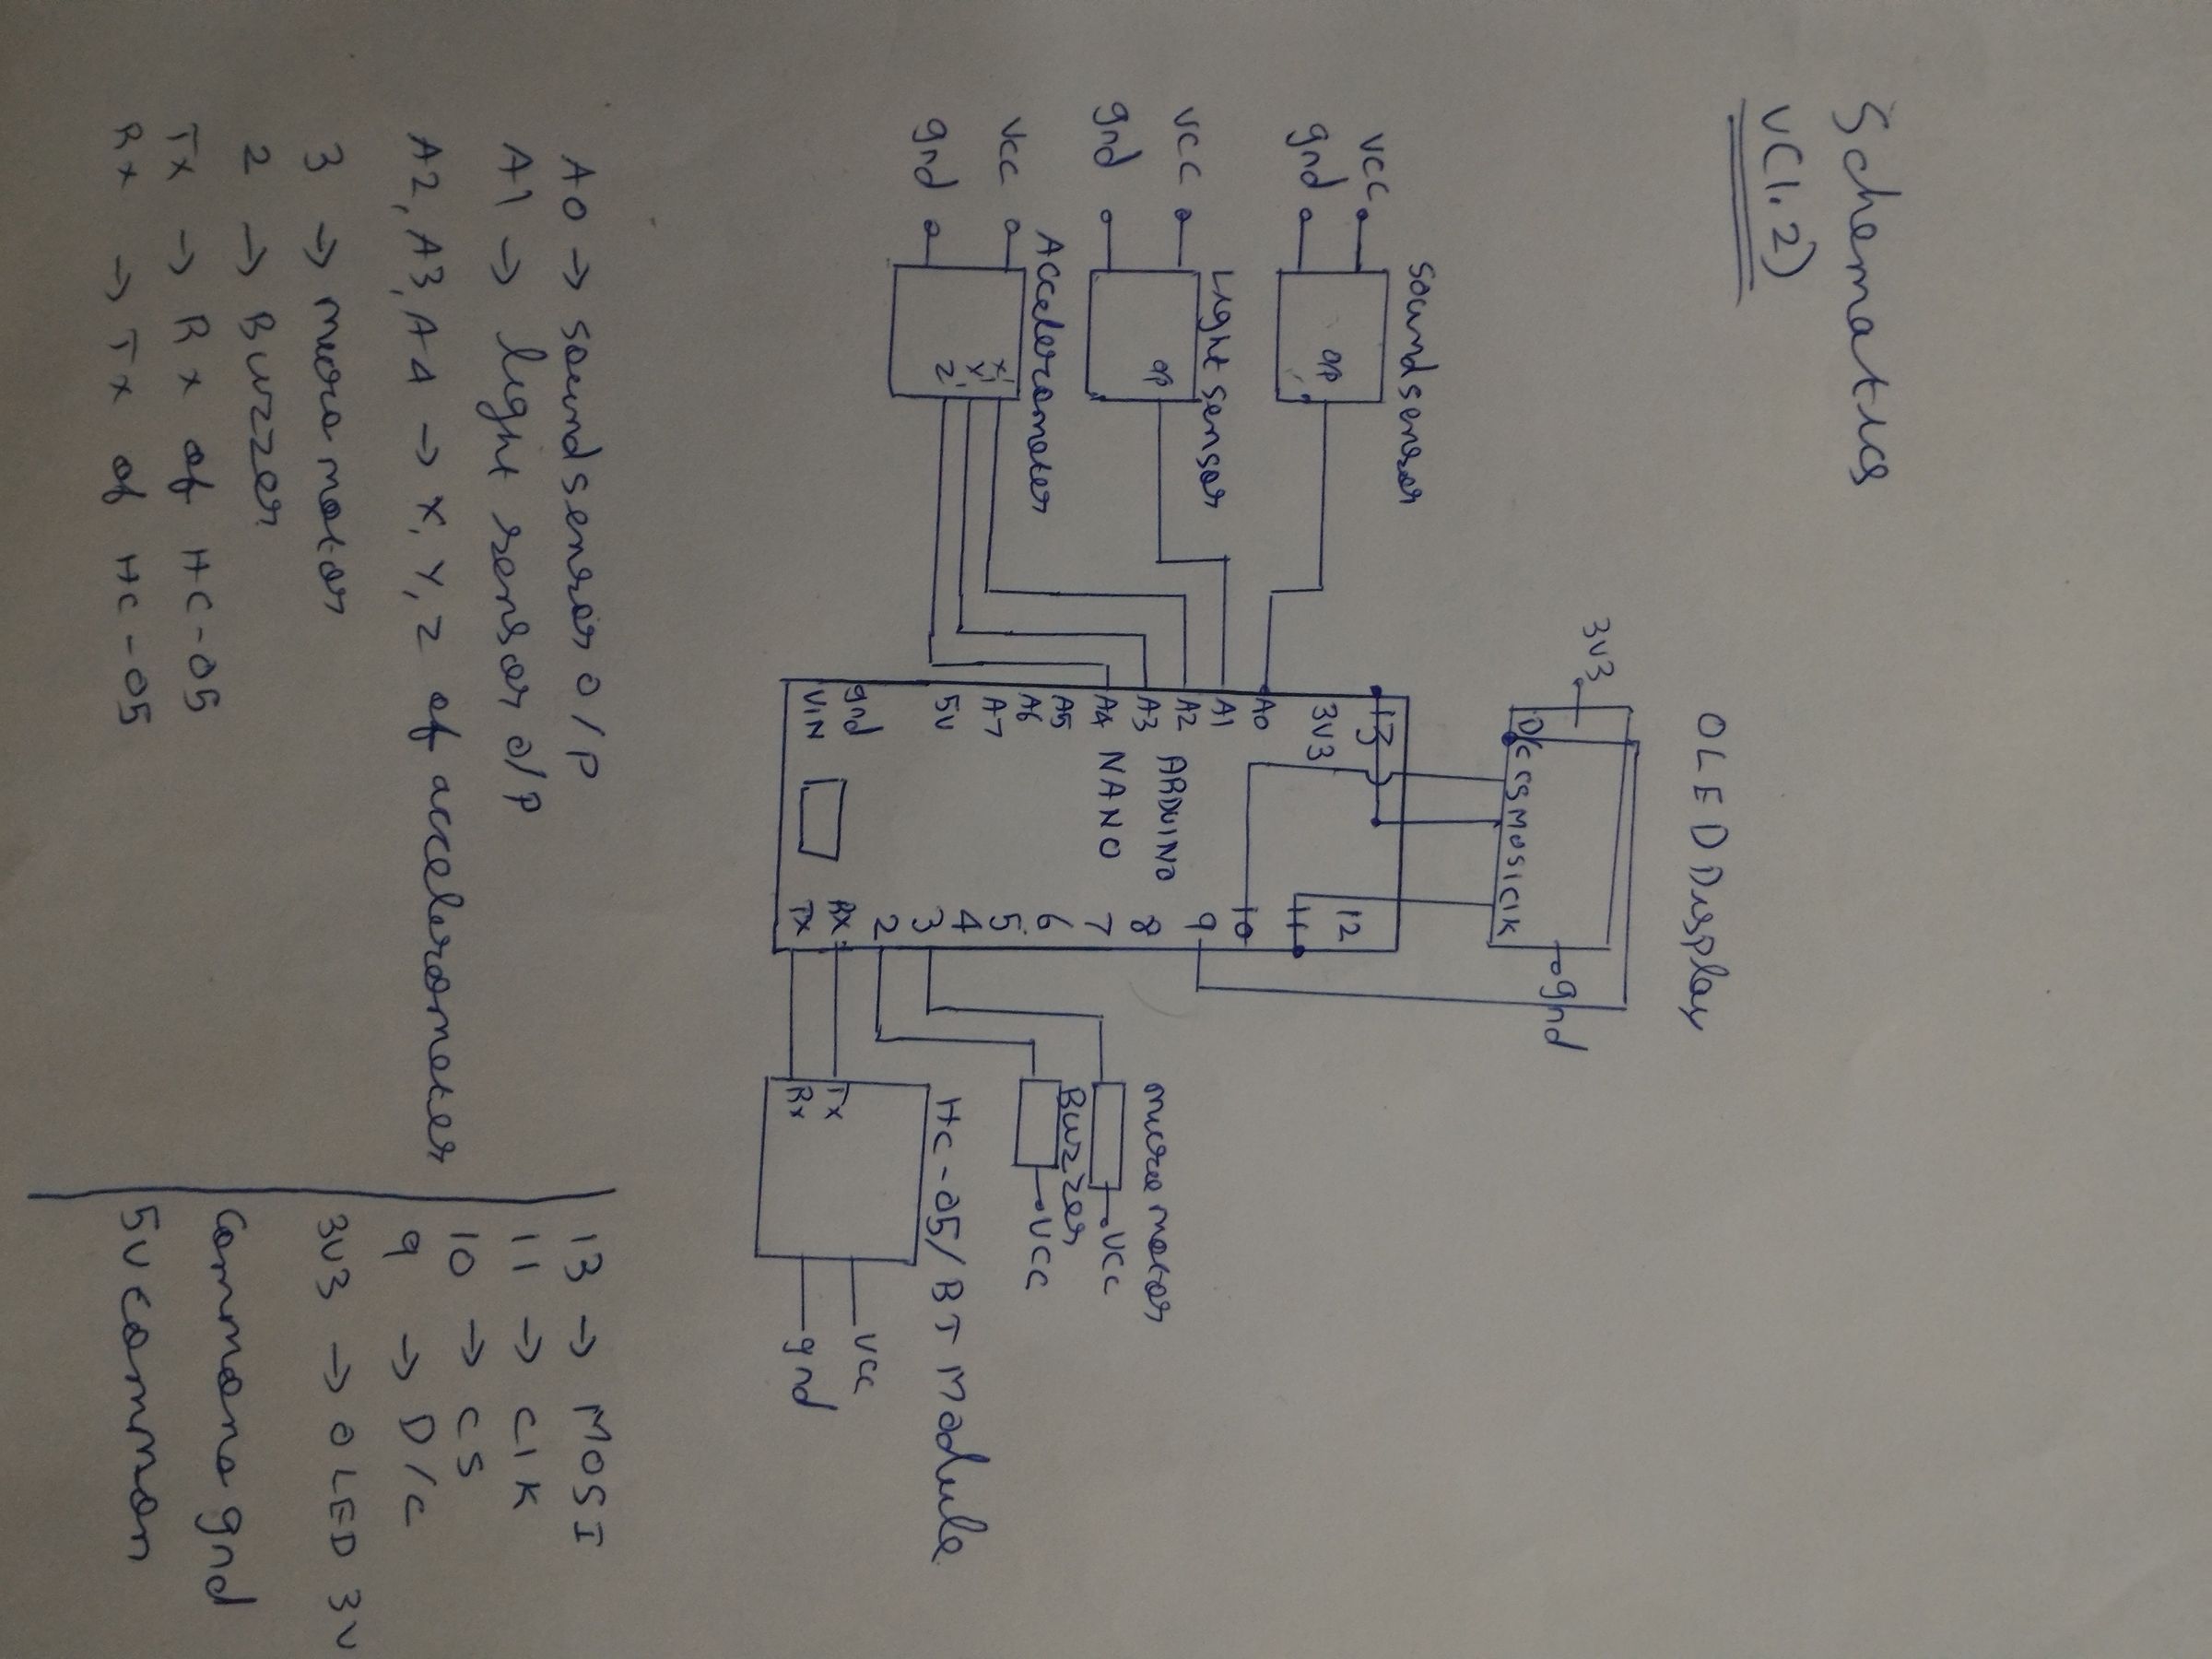 Schematics
V(1.2)
OLED Display
3V3
D/C CS MOSI ClK
gnd
sound sensor
vcc
gnd
o/p
Light sensor
vcc
gnd
o/p
Accelerometer
Vcc
gnd
X
Y
Z
13
3V3
A0
A1
A2
A3
A4
A5
A6
A7
5V
gnd
VIN
ARDUINO
NANO
12
11
10
9
8
7
6
5
4
3
2
RX
TX
micro motor
VCC
Buzzer
VCC
Hc-05/BT Module
Tx
Rx
vcc
gnd
A0 → sound sensor o/p
A1 → light sensor o/p
A2, A3, A4 → X, Y, Z of accelerometer
3 → micro motor
2 → Buzzer
Tx → Rx of HC-05
Rx → Tx of Hc-05
13 → MOSI
11 → ClK
10 → CS
9 → D/C
3V3 → OLED 3V
Commono gnd
5V common